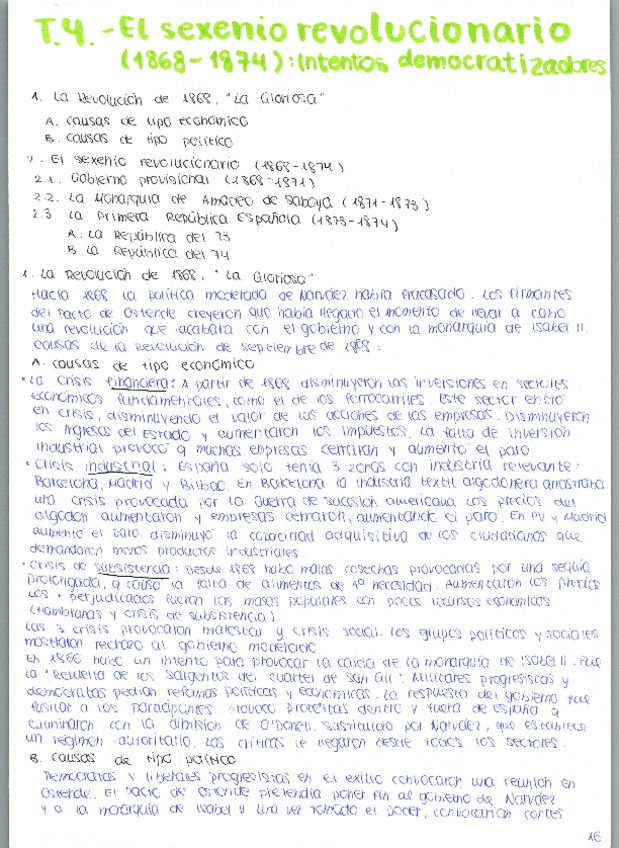 T.4.- El sexenio revolucionario
(1868-1874): Intentos democratizadores
1. La Revolución de 1868. "La Gloriosa"
A. causas de tipo económico
B. causas de tipo político
2. El sexenio revolucionario (1868-1874)
2.1. Gobierno provisional (1868-1871)
2.2. La Monarquía de Amadeo de Saboya (1871-1873)
2.3 La Primera República Española (1873-1874)
A. La República del 73
B. La República del 74
1. La Revolución de 1868. "La Gloriosa"
Hacia 1868 la política moderada de Narváez había fracasado. Los firmantes
del Pacto de Ostende creyeron que había llegado el momento de llevar a cabo
una revolución que acabara con el gobierno y con la monarquía de Isabel II.
causas de la Revolución de septiembre de 1868:
A. causas de tipo económico
• La crisis financiera: A partir de 1868 disminuyeron las inversiones en sectores
económicos fundamentales, como el de los ferrocarriles. Este sector entró
en crisis, disminuyendo el valor de las acciones de las empresas. Disminuyeron
los ingresos del Estado y aumentaron los impuestos. La falta de inversión
industrial provocó q muchas empresas cerraran y aumentó el paro
• Crisis industrial: España solo tenía 3 zonas con industria relevante:
Barcelona, Madrid y Bilbao. En Barcelona la industria textil algodonera arrastraba
una crisis provocada por la Guerra de sucesión americana. Los precios del
algodón aumentaron y empresas cerraron, aumentando el paro. En PV y Madrid
aumentó el paro. disminuyó la capacidad adquisitiva de los ciudadanos que
demandaron menos productos industriales.
• Crisis de subsistencia: Desde 1868 hubo malas cosechas provocadas por una sequía
prolongada, q causó la falta de alimentos de 1ª necesidad. Aumentaron los precios
Los + perjudicados fueron las masas populares con pocos recursos económicos
(Hambrunas y crisis de subsistencia)
Las 3 crisis provocaron malestar y crisis social. Los grupos políticos y sociales
mostraron rechazo al gobierno moderado
En 1866 hubo un intento para provocar la caída de la monarquía de Isabel II. Fue
la "Revuelta de los Sargentos del cuartel de San Gil". Militares progresistas y
demócratas pedían reformas políticas y económicas. La respuesta del gobierno fue
fusilar a los participantes. Provocó protestas dentro y fuera de España q
culminaron con la dimisión de O'Donell. Sustituido por Narváez, que establece
un régimen autoritario. Las críticas le llegaron desde todos los sectores.
B. causas de tipo político
Demócratas y liberales progresistas en el exilio convocaron una reunión en
Ostende. El Pacto de Ostende pretendía poner fin al gobierno de Narváez
y a la monarquía de Isabel II. Una vez tomado el poder, convocarían cortes
16